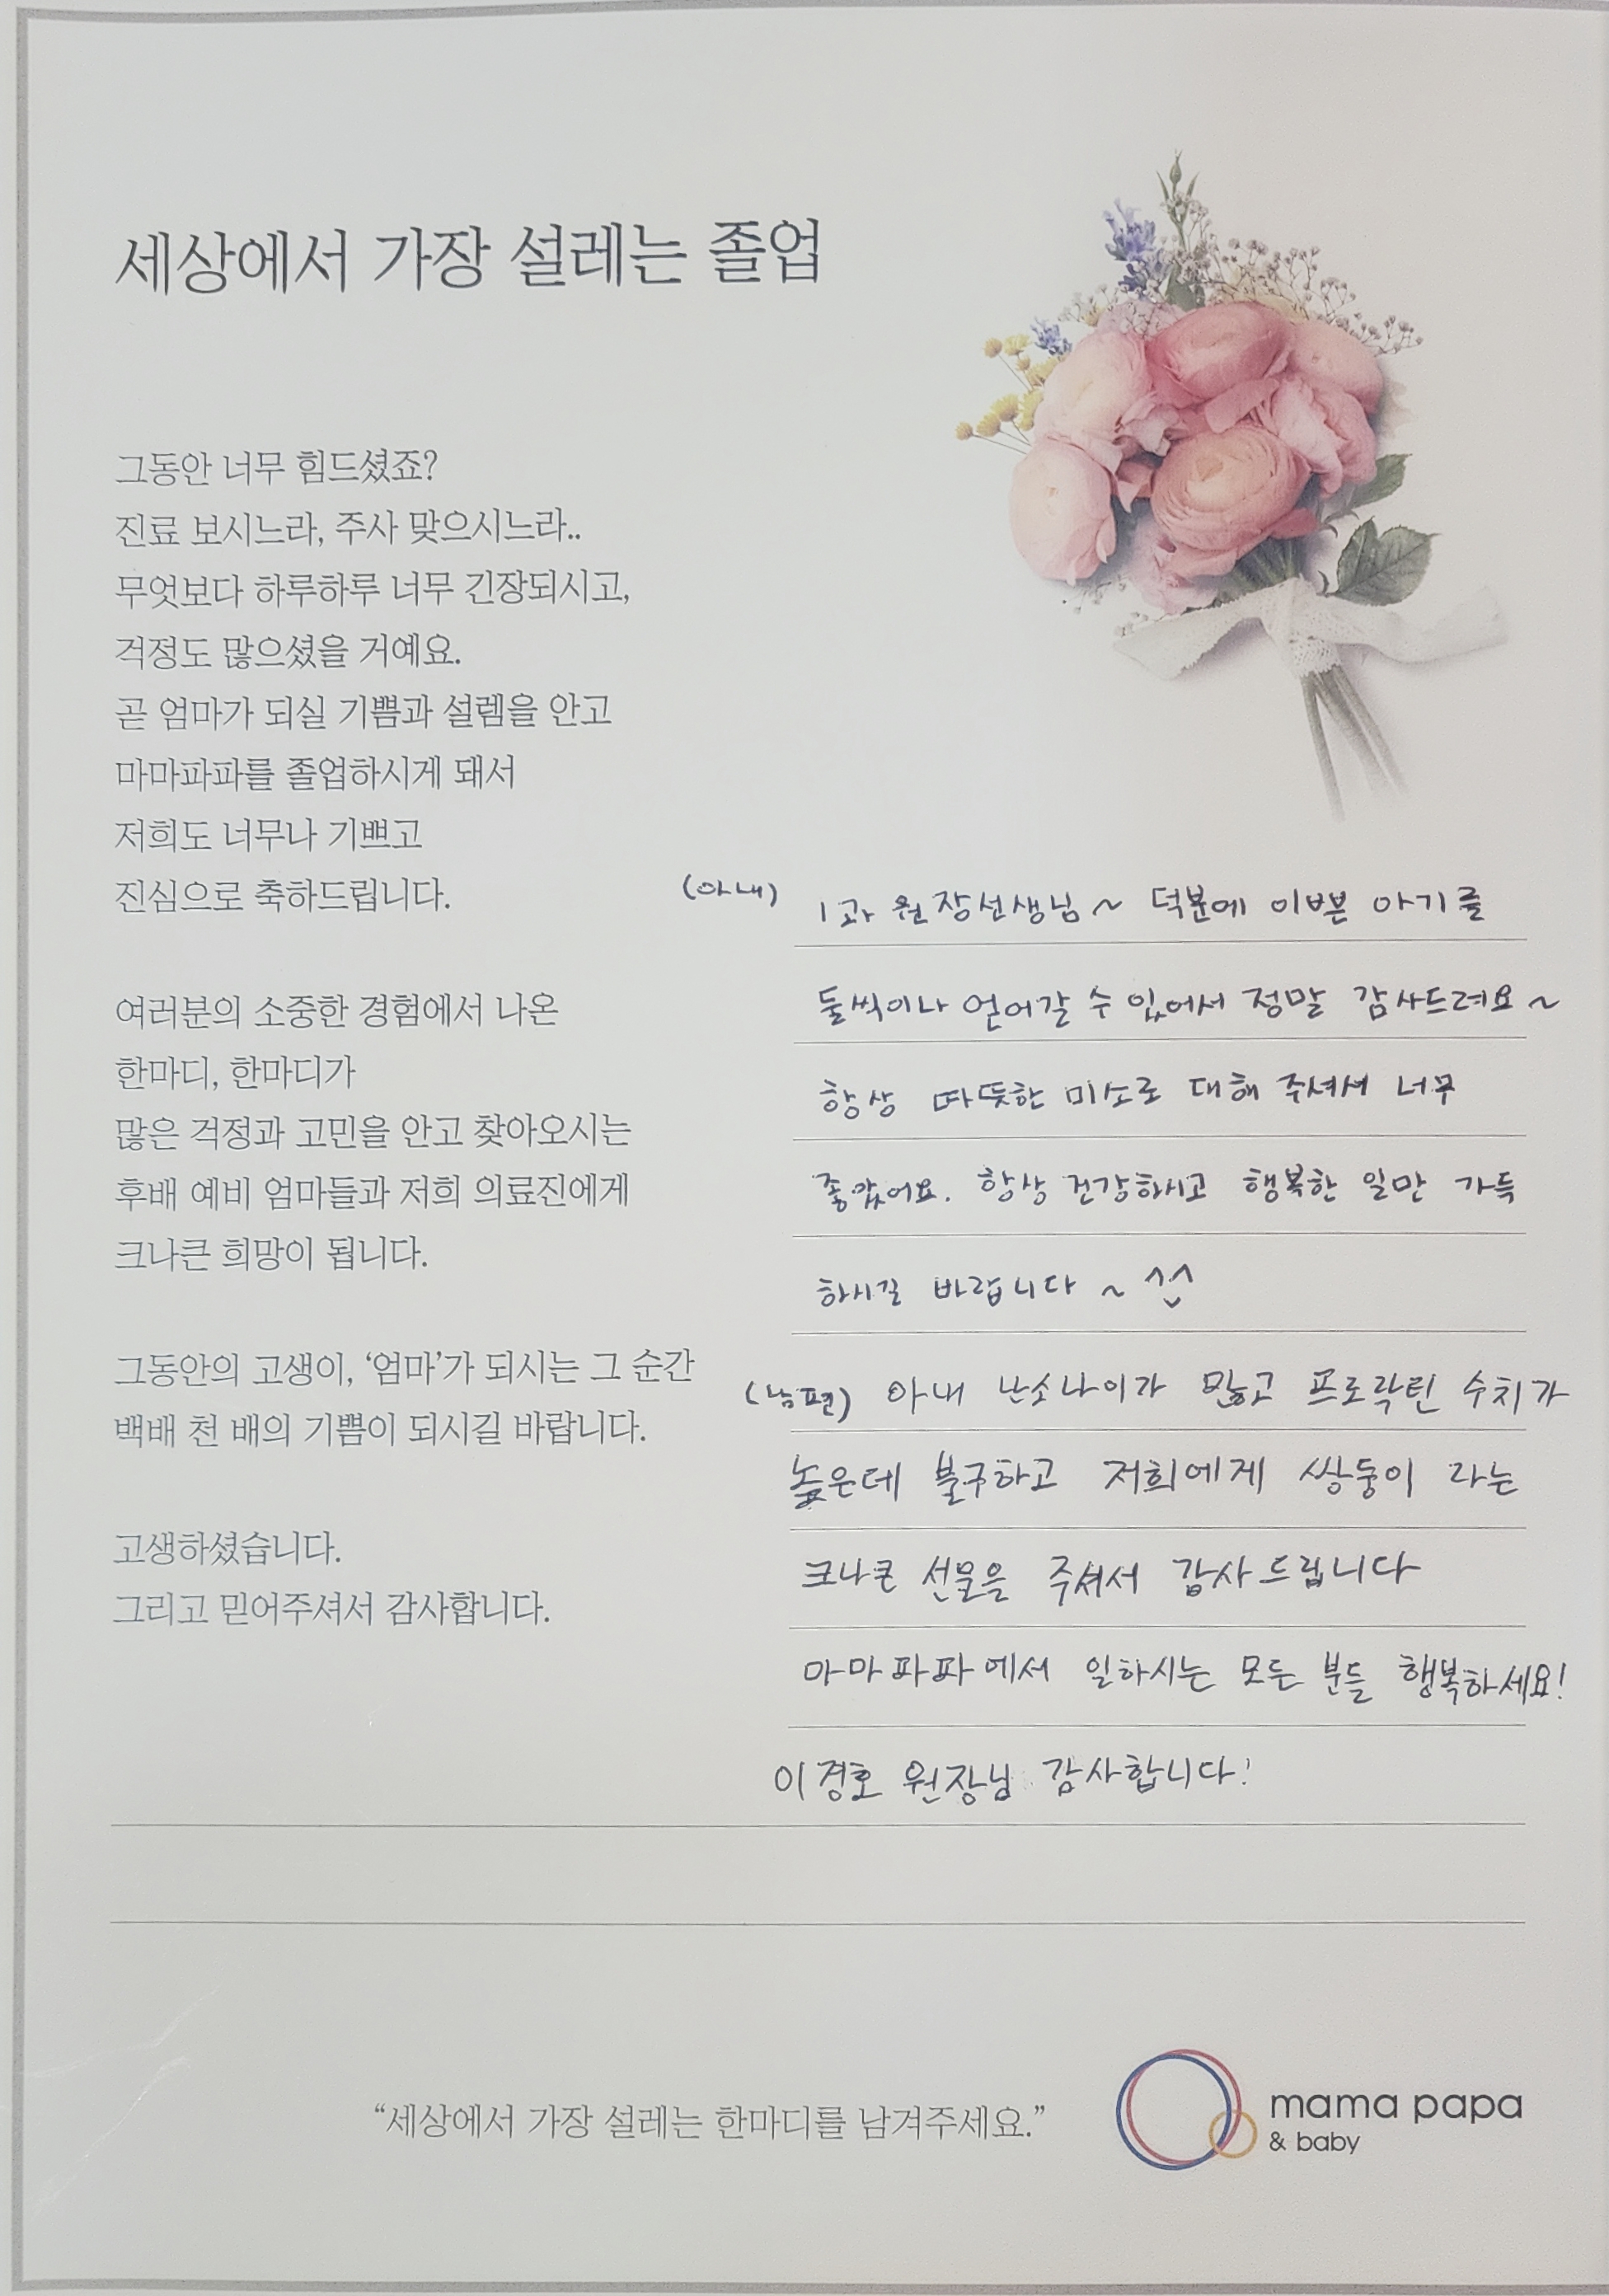 세상에서 가장 설레는 졸업
그동안 너무 힘드셨죠?
진료 보시느라, 주사 맞으시느라..
무엇보다 하루하루 너무 긴장되시고,
걱정도 많으셨을 거예요.
곧 엄마가 되실 기쁨과 설렘을 안고
마마파파를 졸업하시게 돼서
저희도 너무나 기쁘고
진심으로 축하드립니다.
여러분의 소중한 경험에서 나온
한마디, 한마디가
많은 걱정과 고민을 안고 찾아오시는
후배 예비 엄마들과 저희 의료진에게
크나큰 희망이 됩니다.
그동안의 고생이, ‘엄마’가 되시는 그 순간
백배 천 배의 기쁨이 되시길 바랍니다.
고생하셨습니다.
그리고 믿어주셔서 감사합니다.
(아내) 1과 원장선생님~ 덕분에 이쁜 아기를
둘씩이나 얻어갈 수 있어서 정말 감사드려요~
항상 따뜻한 미소로 대해 주셔서 너무
좋았어요. 항상 건강하시고 행복한 일만 가득
하시길 바랍니다~ ^^
(남편) 아내 난소나이가 많고 프로락틴 수치가
높은데 불구하고 저희에게 쌍둥이 라는
크나큰 선물을 주셔서 감사드립니다
마마파파에서 일하시는 모든 분들 행복하세요!
이경호 원장님 감사합니다!
“세상에서 가장 설레는 한마디를 남겨주세요.”
mama papa
& baby